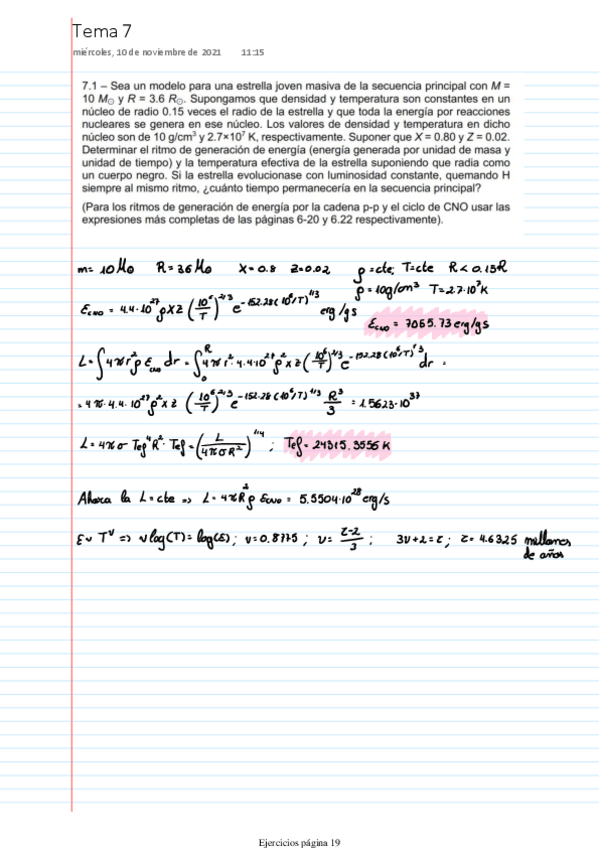 Tema 7
miércoles, 10 de noviembre de 2021 11:15
7.1 – Sea un modelo para una estrella joven masiva de la secuencia principal con M =
10 M⊙ y R = 3.6 R⊙. Supongamos que densidad y temperatura son constantes en un
núcleo de radio 0.15 veces el radio de la estrella y que toda la energía por reacciones
nucleares se genera en ese núcleo. Los valores de densidad y temperatura en dicho
núcleo son de 10 g/cm³ y 2.7×10⁷ K, respectivamente. Suponer que X = 0.80 y Z = 0.02.
Determinar el ritmo de generación de energía (energía generada por unidad de masa y
unidad de tiempo) y la temperatura efectiva de la estrella suponiendo que radia como
un cuerpo negro. Si la estrella evolucionase con luminosidad constante, quemando H
siempre al mismo ritmo, ¿cuánto tiempo permanecería en la secuencia principal?
(Para los ritmos de generación de energía por la cadena p-p y el ciclo de CNO usar las
expresiones más completas de las páginas 6-20 y 6.22 respectivamente).
m= 10 M⊙ R= 3.6 M⊙ X=0.8 Z=0.02 ρ=cte, T=cte R<0.15R
ρ=10g/cm³ T=2.7·10⁷K
ε_CNO = 4.4·10²⁷ ρXZ (10⁶/T)^2/3 e^-152.28(10⁶/T)^1/3 erg/gs
ε_CNO = 7065.73 erg/gs
L=∫4πr²ρ ε_CNO dr = ∫₀ᴿ 4πr²·4.4·10²⁷ρ²XZ(10⁶/T)^2/3 e^-152.28(10⁶/T)^1/3 dr =
= 4π·4.4·10²⁷ρ²XZ (10⁶/T)^2/3 e^-152.28(10⁶/T)^1/3 R³/3 = 1.5623·10³⁷
L=4πσ Tef⁴R² Tef=(L/4πσR²)^1/4 ; Tef= 24315.3556 K
Ahora la L=cte => L=4πR²ρ ε_CNO = 5.5504·10²⁸ erg/s
ε∼T^ν => νlog(T)=log(ε); ν=0.8775 ; ν= τ-2/3 ; 3ν+2=τ; τ=4.6325 millones
de años
Ejercicios página 19